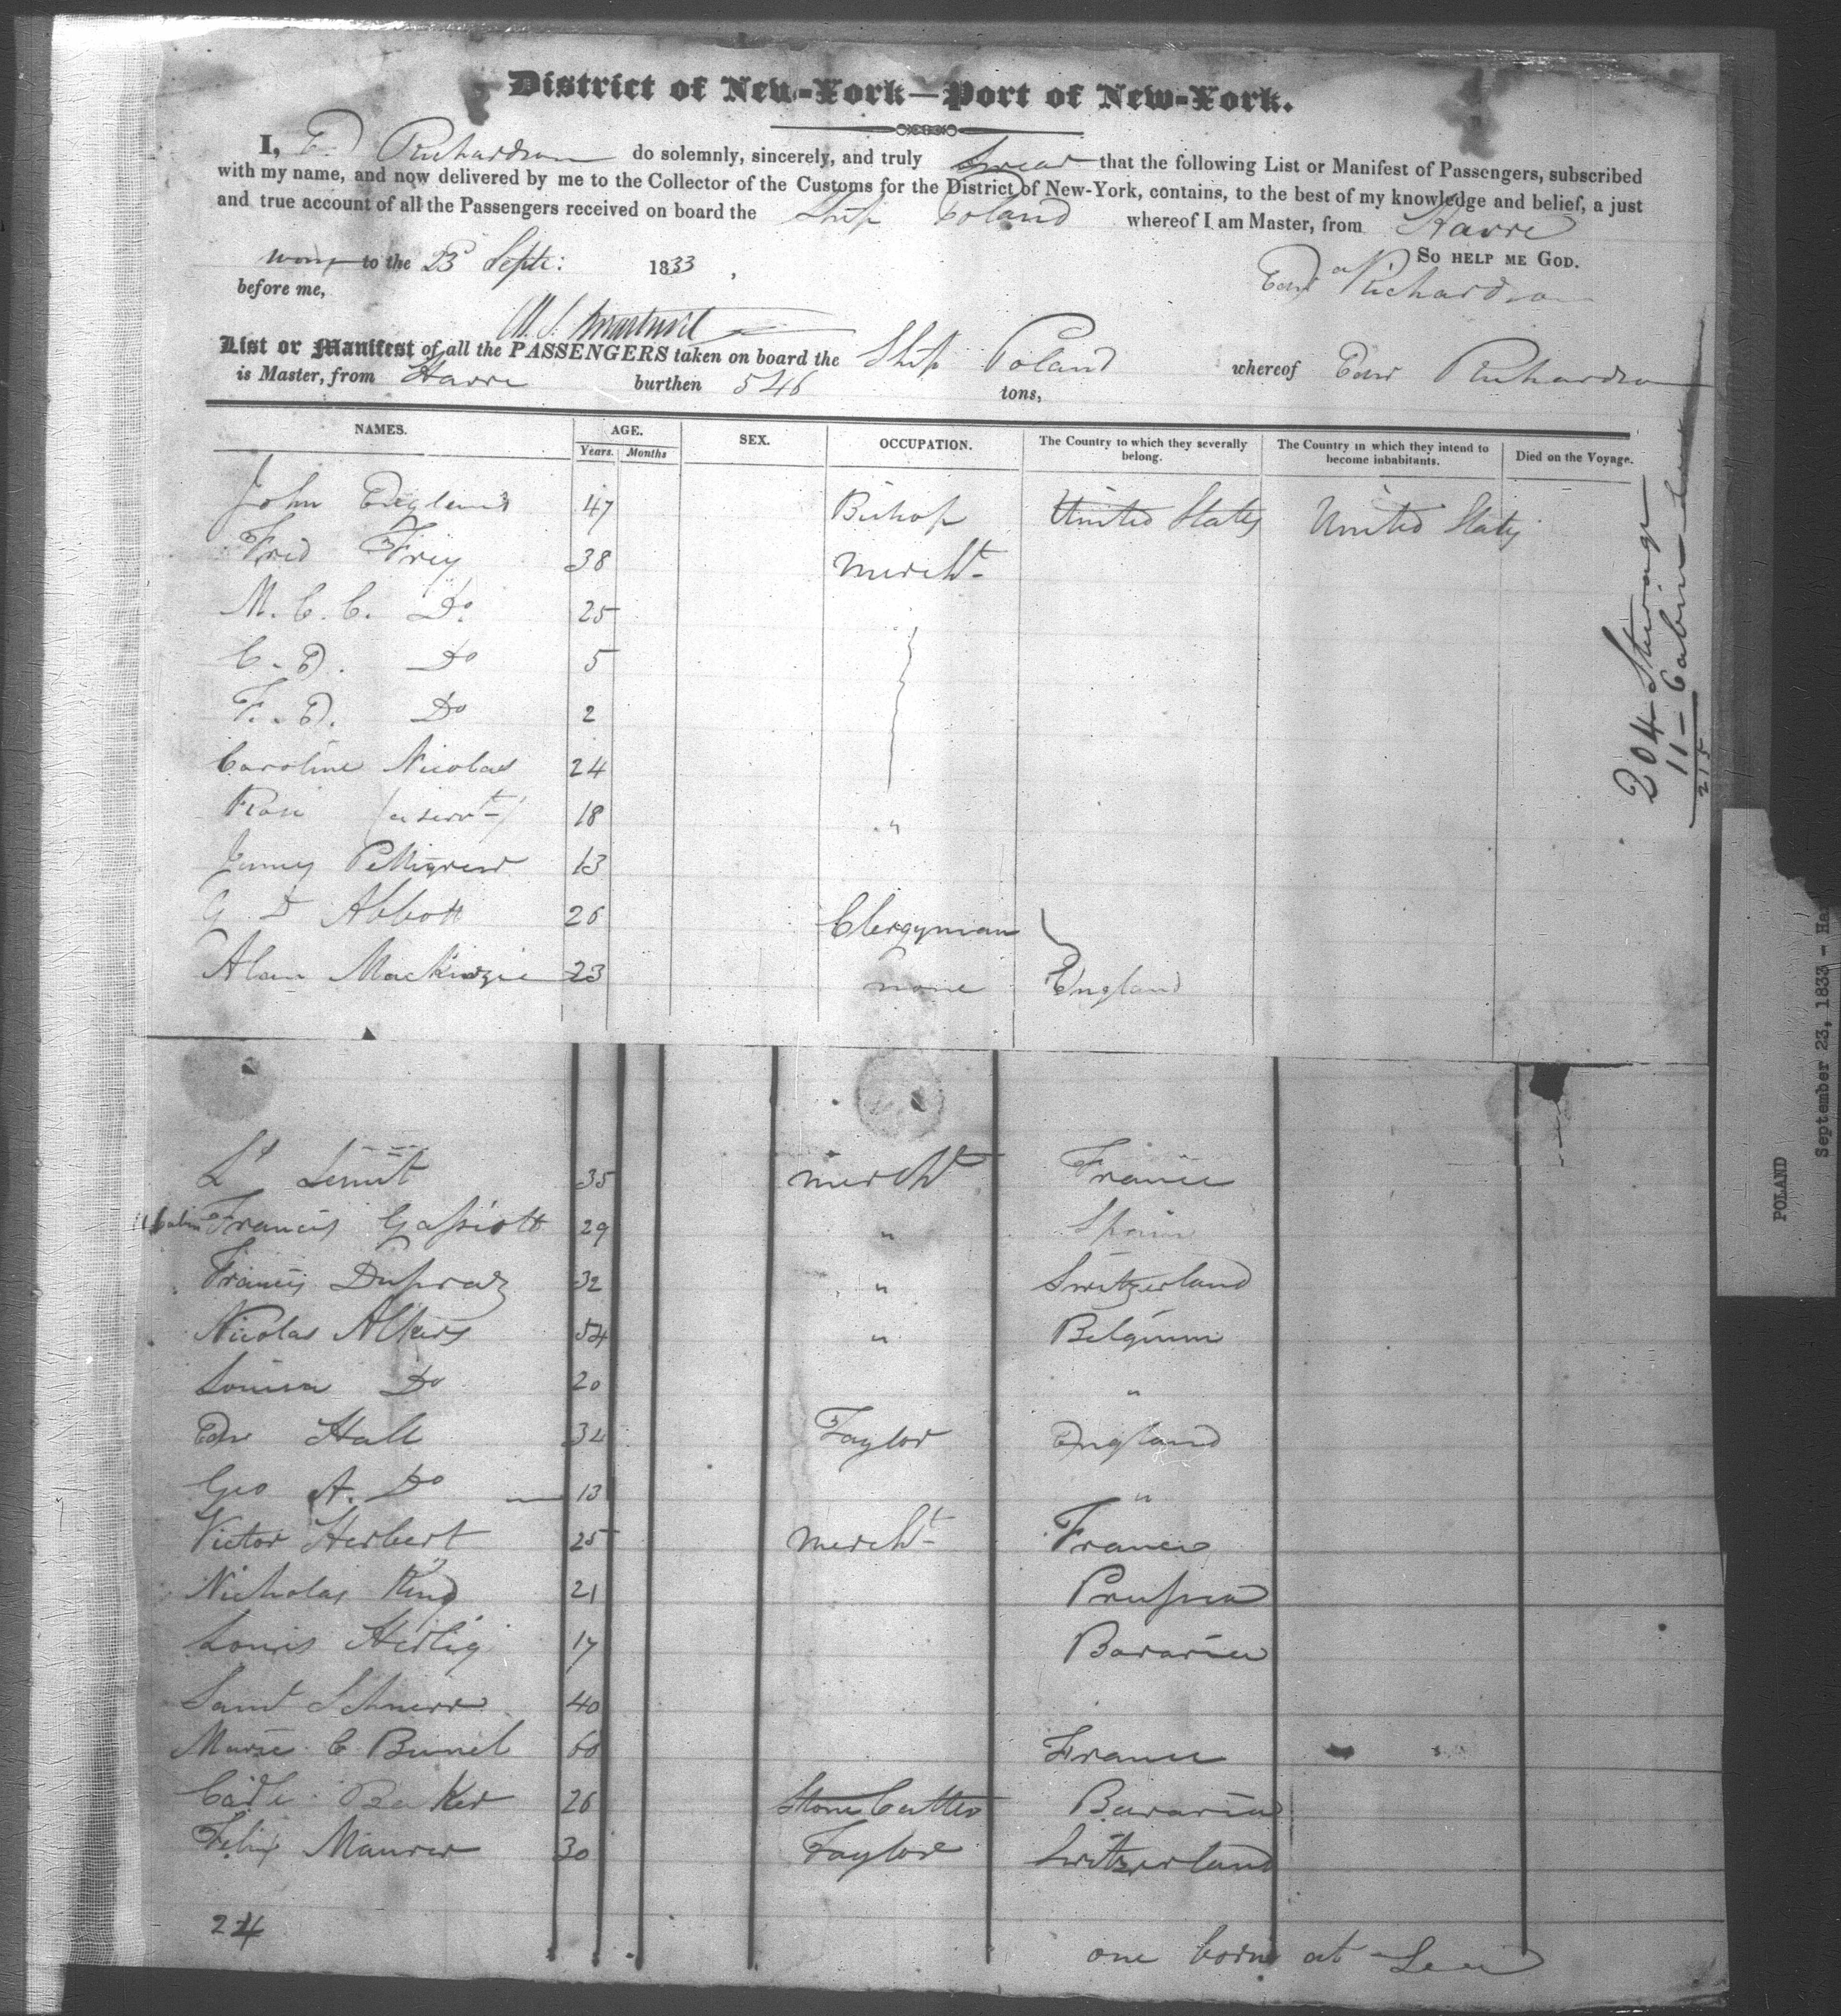 District of New-York—Port of New-York.
I, E Richardson do solemnly, sincerely, and truly Swear that the following List or Manifest of Passengers, subscribed
with my name, and now delivered by me to the Collector of the Customs for the District of New-York, contains, to the best of my knowledge and belief, a just
and true account of all the Passengers received on board the Ship Poland whereof I am Master, from Havre
So help me God.
to the 23 Sept: 1833
Edw Richardson
before me,
List or Manifest of all the PASSENGERS taken on board the Ship Poland whereof Edw Richardson
is Master, from Havre burthen 546 tons,
NAMES. AGE. SEX. OCCUPATION. The Country to which they severally belong. The Country in which they intend to become inhabitants. Died on the Voyage.
Years. Months
John England 47 Bishop United States United States
Fred Frey 38 Mercht
M. C. C. Do 25
C. E. Do 5
F. E. Do 2
Caroline Nicolas 24
Rose (a servt) 18 "
Jenny Pettigrew 13
G D Abbott 26 Clergyman
Alan Mackinzie 23 none England
204 Steerage
11 - Cabin
215
Lt 35 mercht France
11 Cabin Francis Gassiott 29 " Spain
Francis Dupraz 32 " Switzerland
Nicolas Alkers 54 " Belgium
Louisa Do 20 "
Edw Hall 34 Taylor England
Geo A. Do 13 "
Victor Herbert 25 mercht France
Nicholas King 21 Prussia
Louis Herlig 17 Bavaria
Saml Schnerr 40
C Bunel 60 France
Carl Baker 26 Stone Cutter Bavaria
Felix Maurer 30 Taylor Switzerland
24
one born at Sea
POLAND
September 23, 1833 - Ha